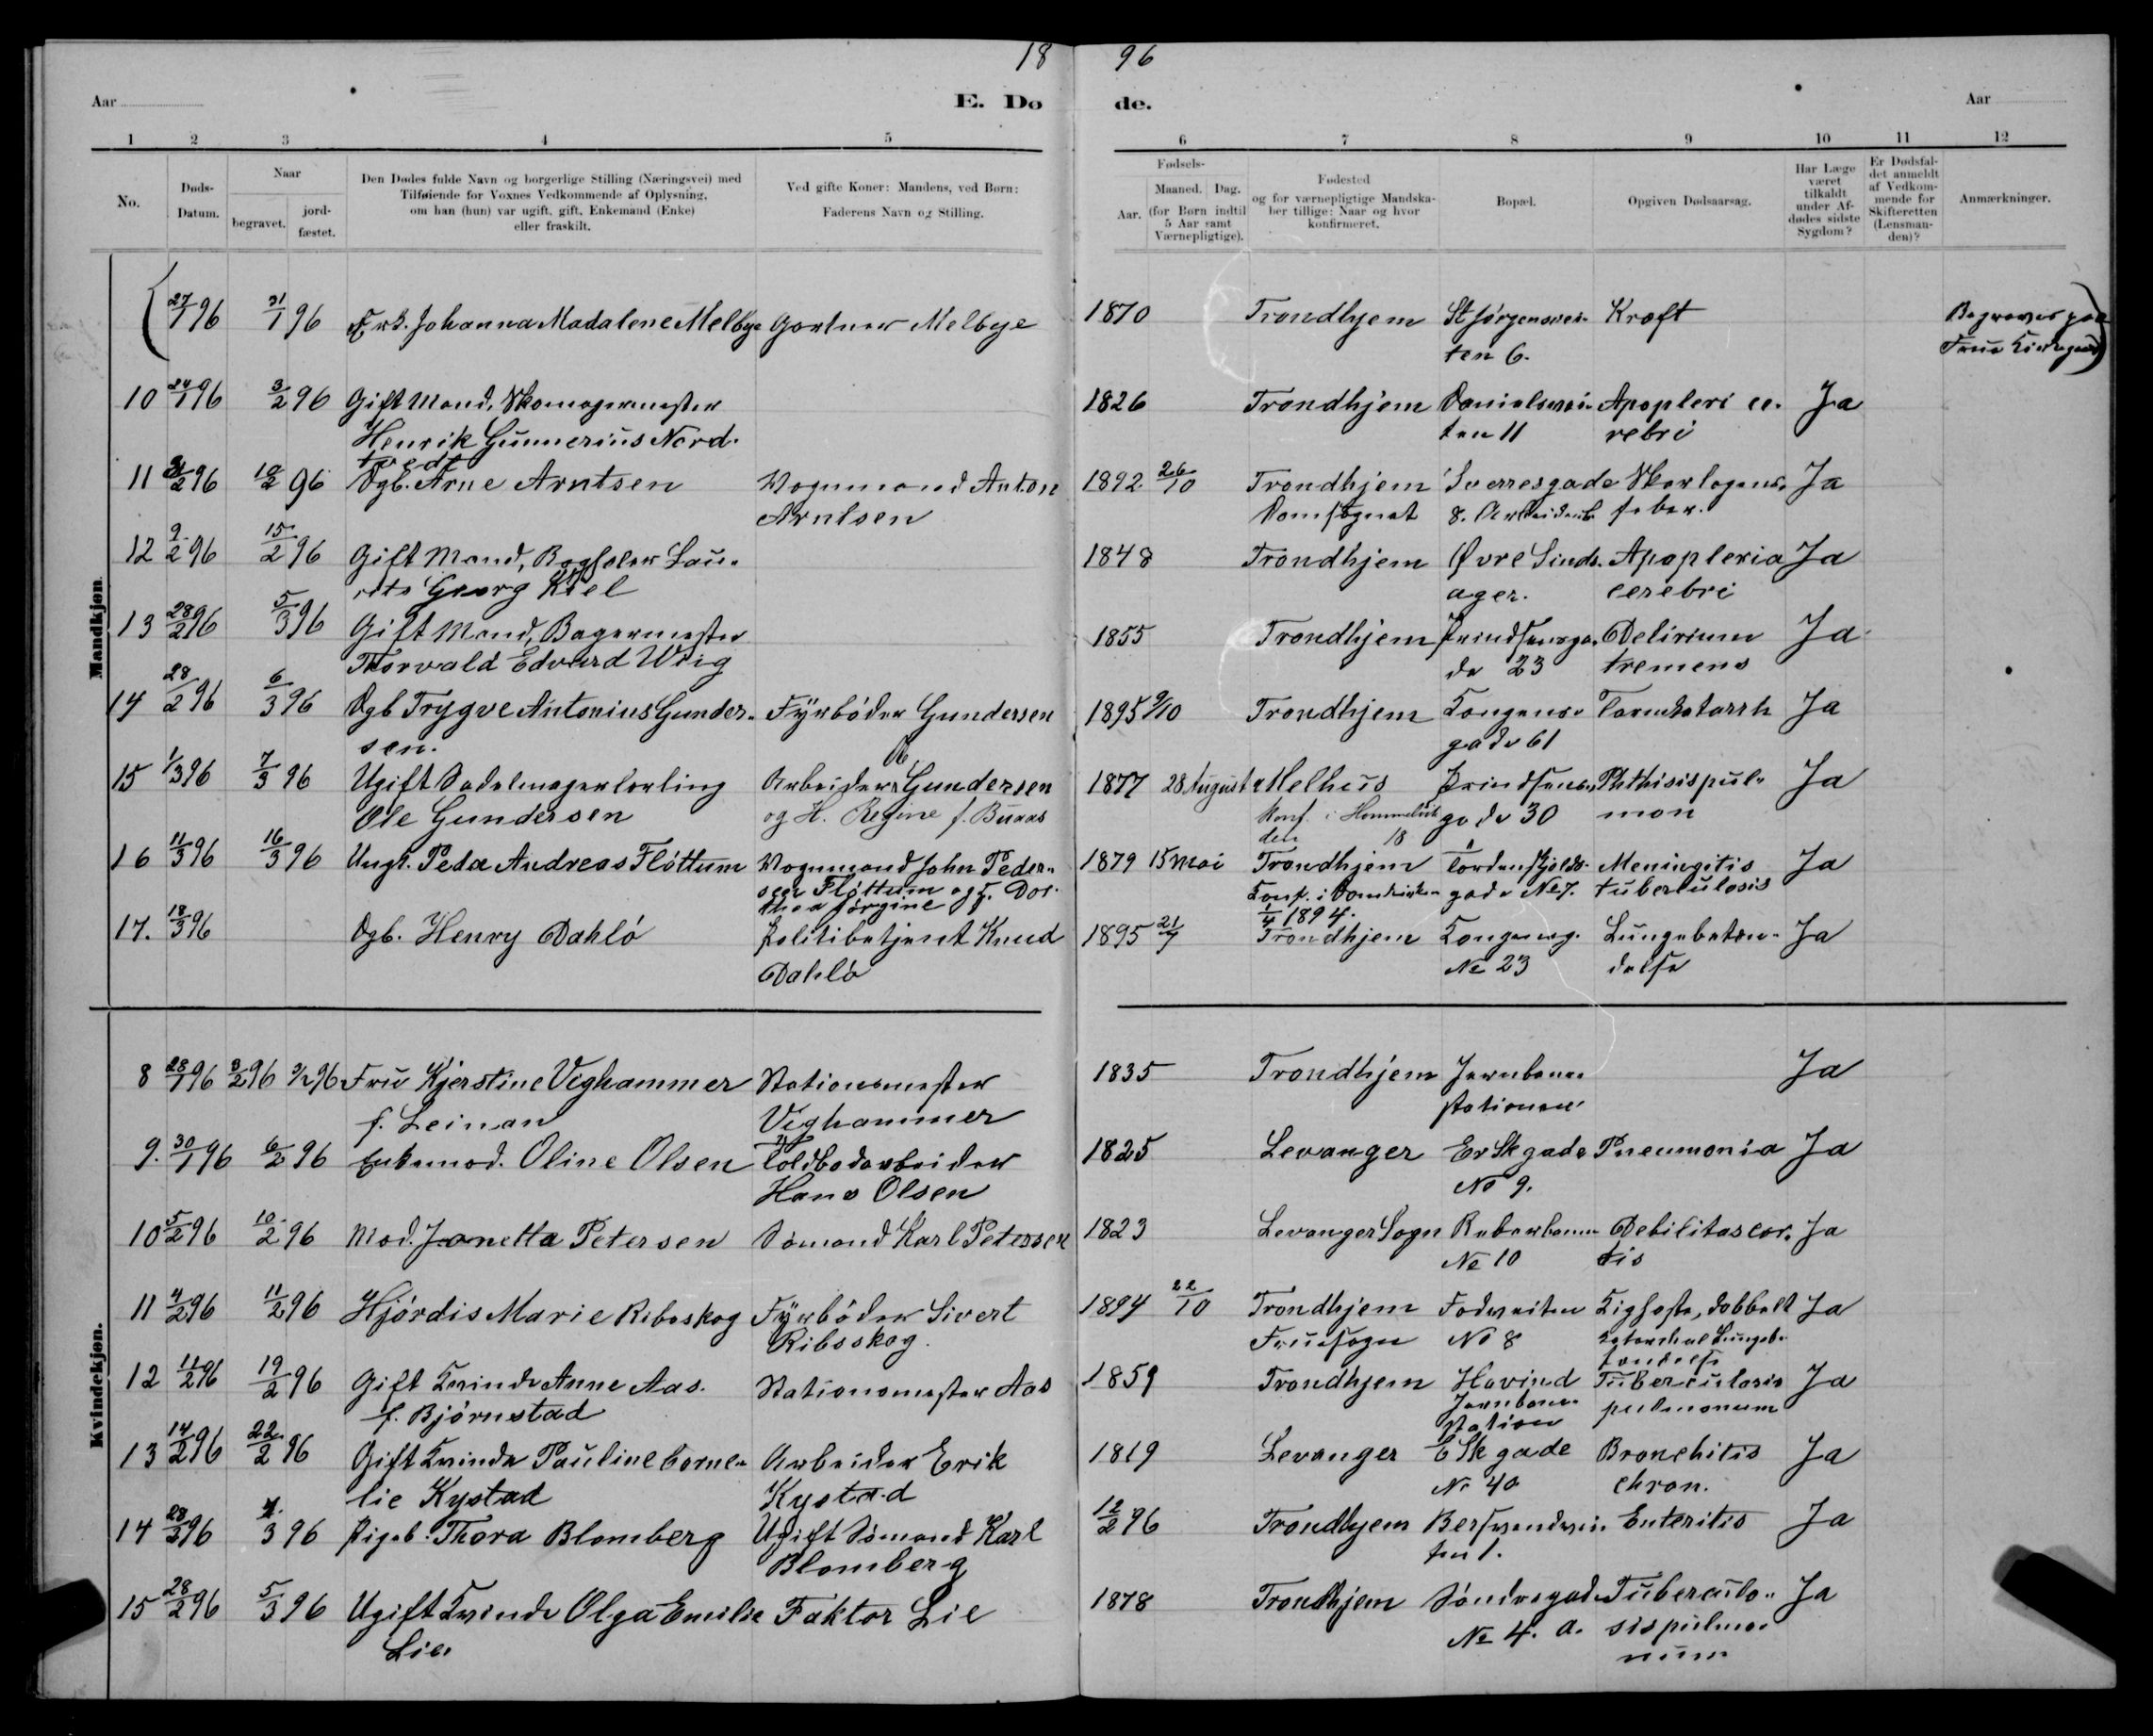 18 96
Aar E. Dø de. Aar
1 2 3 4 5 6 7 8 9 10 11 12
No.
Døds-
Datum.
Naar
begravet.
jord-
fæstet.
Den Dødes fulde Navn og borgerlige Stilling (Næringsvei) med
Tilføiende for Voxnes Vedkommende af Oplysning,
om han (hun) var ugift, gift, Enkemand (Enke)
eller fraskilt.
Ved gifte Koner: Mandens, ved Børn:
Faderens Navn og Stilling.
Fødsels-
Aar.
Maaned. Dag.
(for Børn indtil
5 Aar samt
Værnepligtige).
Fødested
og for værnepligtige Mandska-
ber tillige: Naar og hvor
konfirmeret.
Bopæl.
Opgiven Dødsaarsag.
Har Læge
været
tilkaldt
under Af-
dødes sidste
Sygdom?
Er Dødsfal-
det anmeldt
af Vedkom-
mende for
Skifteretten
(Lensman-
den)?
Anmærkninger.
Mandkjøn
( 27/1 96 31/1 96 Frk. Johanna Madalene Melbye Gartner Melbye 1870 Trondhjem St Jørgensvei- Kræft Begraves paa
ten 6. Frue Kirkegaard)
10 24/1 96 3/2 96 Gift Mand, Skomagermester 1826 Trondhjem Danielsvei- Apoplexi ce- Ja
Henrik Gunnerius Nord- ten 11 rebri
tvedt
11 2 96 10/2 96 Dgb. Arne Arntsen Vognmand Anton 1892 26/10 Trondhjem Sverresgade Skarlagens- Ja
Arntsen Domsognet 8. feber.
12 9/2 96 15/2 96 Gift Mand, Lau- 1848 Trondhjem Øvre Singsager. Apoplexia Ja
rits Georg Kiel cerebri
13 28/2 96 5/3 96 Gift Mand, Bagermester 1855 Trondhjem Prindsensga- Delirium Ja
Thorvald Edvard Wiig de 23 tremens
14 28/2 96 6/3 96 Dgb Trygve Antonius Gunder- Fyrbøder Gundersen 1895 9/10 Trondhjem Kongens- Tarmkatarrh Ja
sen. gade 61
15 1/3 96 7/3 96 Ugift Sadelmagerlærling Arbeider Gundersen 1877 28 August Melhus Prindsens- Phthisis pul- Ja
Ole Gundersen og H. Regine f. Buaas Konf. i gade 30 mon
den 18
16 11/3 96 16/3 96 Ungk. Peder Andreas Fløttum Vognmand John Peder- 1879 15 Mai Trondhjem Tordenskjolds- Meningitis Ja
sen Fløttum og H. Dor- Konf. i Domkirken gade No 7. tuberkulosis
thea Jørgine 1/4 1894.
17. 18/3 96 Dgb. Henry Dahlø Politibetjent Knud 1895 21/7 Trondhjem Kongensg. Lungebetæn- Ja
Dahlø No 23 delse
Kvindekjøn.
8 28/1 96 3/2 96 3/2 96 Fru Kjerstine Veghammer Stationsmester 1835 Trondhjem Jernbane- Ja
f. Leinan Veghammer stationen
9. 30/1 96 6/2 96 Enkemad. Oline Olsen Toldbodarbeider 1825 Levanger Er Sk gade Pneumonia Ja
Hans Olsen No 9.
10 5/2 96 10/2 96 Mad. Janetta Petersen Sømand Karl Petersen 1823 Levanger Sogn Debilitas cor- Ja
No 10 dis
11 4/2 96 11/2 96 Hjørdis Marie Ribsskog Fyrbøder Sivert 1894 22/10 Trondhjem Fodveiten Kighoste, dobbelt Ja
Ribsskog. Fruesogn No 8 Katarrhal Lungebe-
tændelse
12 11/2 96 19/2 96 Gift Kvinde Anne Aas. Stationsmester Aas 1859 Trondhjem Havind Tuberculosis Ja
f. Bjørnstad Jernbane- pulmonum
Station
13 14/2 96 22/2 96 Gift Kvinde Pauline Corne- Arbeider Erik 1819 Levanger E Sk gade Bronchitis Ja
lie Kystad Kystad No 40 chron.
14 28/2 96 4/3 96 Pigeb. Thora Blomberg Ugift Sømand Karl 12/2 96 Trondhjem Bersvendvei- Enteritis Ja
Blomberg ten 1.
15 28/2 96 5/3 96 Ugift Kvinde Olga Emilie Faktor Lie 1878 Trondhjem Søndregade Tuberculo- Ja
Lie No 4. a. sis pulmo-
num